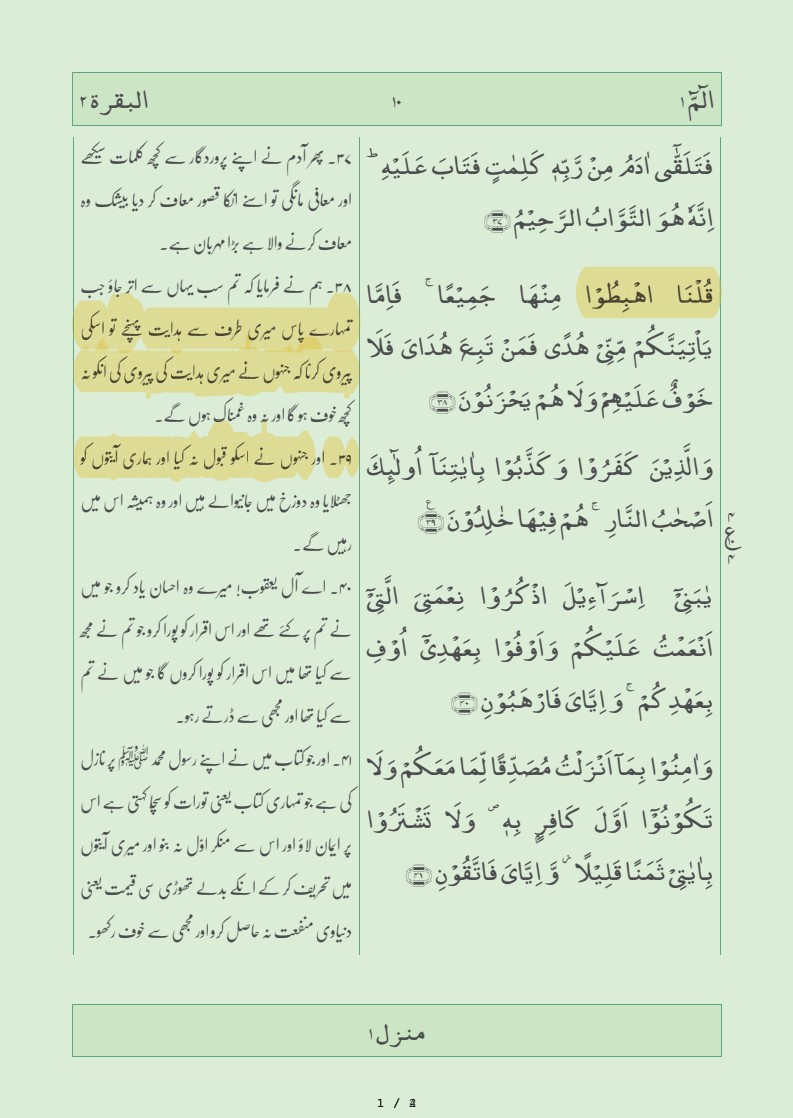 الٓمّٓ ۱
۱۰
البقرة ۲
فَتَلَقّٰٓى اٰدَمُ مِنْ رَّبِّهٖ كَلِمٰتٍ فَتَابَ عَلَيْهِ ؕ
اِنَّهٗ هُوَ التَّوَّابُ الرَّحِيْمُ ﴿۳۷﴾
قُلْنَا اهْبِطُوْا مِنْهَا جَمِيْعًا ۚ فَاِمَّا
يَاْتِيَنَّكُمْ مِّنِّيْ هُدًى فَمَنْ تَبِعَ هُدَايَ فَلَا
خَوْفٌ عَلَيْهِمْ وَلَا هُمْ يَحْزَنُوْنَ ﴿۳۸﴾
وَالَّذِيْنَ كَفَرُوْا وَ كَذَّبُوْا بِاٰيٰتِنَآ اُولٰٓئِكَ
اَصْحٰبُ النَّارِ ۚ هُمْ فِيْهَا خٰلِدُوْنَ ﴿۳۹﴾
يٰبَنِيْٓ اِسْرَآءِيْلَ اذْكُرُوْا نِعْمَتِيَ الَّتِيْٓ
اَنْعَمْتُ عَلَيْكُمْ وَاَوْفُوْا بِعَهْدِيْٓ اُوْفِ
بِعَهْدِكُمْ ۚ وَ اِيَّايَ فَارْهَبُوْنِ ﴿۴۰﴾
وَاٰمِنُوْا بِمَآ اَنْزَلْتُ مُصَدِّقًا لِّمَا مَعَكُمْ وَلَا
تَكُوْنُوْٓا اَوَّلَ كَافِرٍۭ بِهٖ ۪ وَلَا تَشْتَرُوْا
بِاٰيٰتِيْ ثَمَنًا قَلِيْلًا ؗ وَّ اِيَّايَ فَاتَّقُوْنِ ﴿۴۱﴾
۳۷۔ پھر آدم نے اپنے پروردگار سے کچھ کلمات سیکھے
اور معافی مانگی تو اسنے انکا قصور معاف کر دیا بیشک وہ
معاف کرنے والا ہے بڑا مہربان ہے۔
۳۸۔ ہم نے فرمایا کہ تم سب یہاں سے اتر جاؤ جب
تمہارے پاس میری طرف سے ہدایت پہنچے تو اسکی
پیروی کرنا کہ جنہوں نے میری ہدایت کی پیروی کی انکو نہ
کچھ خوف ہو گا اور نہ وہ غمناک ہوں گے۔
۳۹۔ اور جنہوں نے اسکو قبول نہ کیا اور ہماری آیتوں کو
جھٹلایا وہ دوزخ میں جانیوالے ہیں اور وہ ہمیشہ اس میں
رہیں گے۔
۴۰۔ اے آل یعقوب! میرے وہ احسان یاد کرو جو میں
نے تم پر کئے تھے اور اس اقرار کو پورا کرو جو تم نے مجھ
سے کیا تھا میں اس اقرار کو پورا کروں گا جو میں نے تم
سے کیا تھا اور مجھی سے ڈرتے رہو۔
۴۱۔ اور جو کتاب میں نے اپنے رسول محمد ﷺ پر نازل
کی ہے جو تمہاری کتاب یعنی تورات کو سچا کہتی ہے اس
پر ایمان لاؤ اور اس سے منکر اوّل نہ بنو اور میری آیتوں
میں تحریف کر کے انکے بدلے تھوڑی سی قیمت یعنی
دنیاوی منفعت نہ حاصل کرو اور مجھی سے خوف رکھو۔
منزل ۱